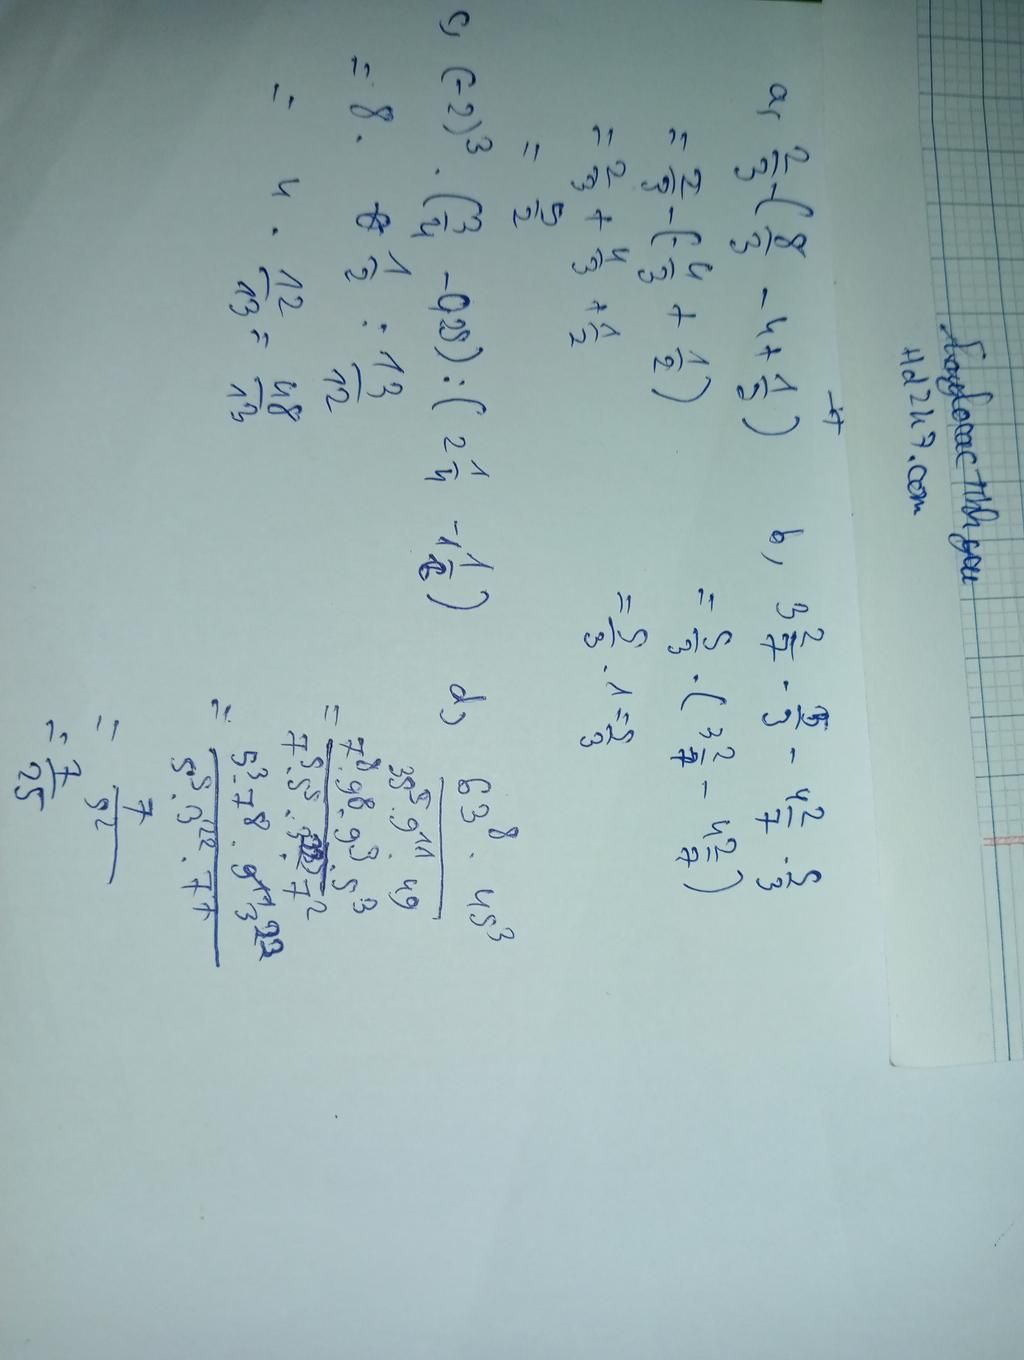 Hd247.com
a, 2/3 - (8/3 - 4 + 1/5)
= 2/3 - (-4/3 + 1/2)
= 2/3 + 4/3 + 1/2
= 5/2
b, 3 2/7 . 5/3 - 4 2/7 . 5/3
= 5/3 . (3 2/7 - 4 2/7)
= 5/3 . 1 = 5/3
c, (-2)³ . (3/4 - 0,25) : (2 1/4 - 1 1/6)
= 8 . 1/2 : 13/12
= 4 . 12/13 = 48/13
d, 63⁸ . 45³ / 35⁵ . 9¹¹ . 49
= 7⁸ . 9⁸ . 9³ . 5³ / 7⁵ . 5⁵ . . 7²
= 5³ . 7⁸ . / 5⁵ . 3²² . 7⁷
= 7 / 5²
= 7/25